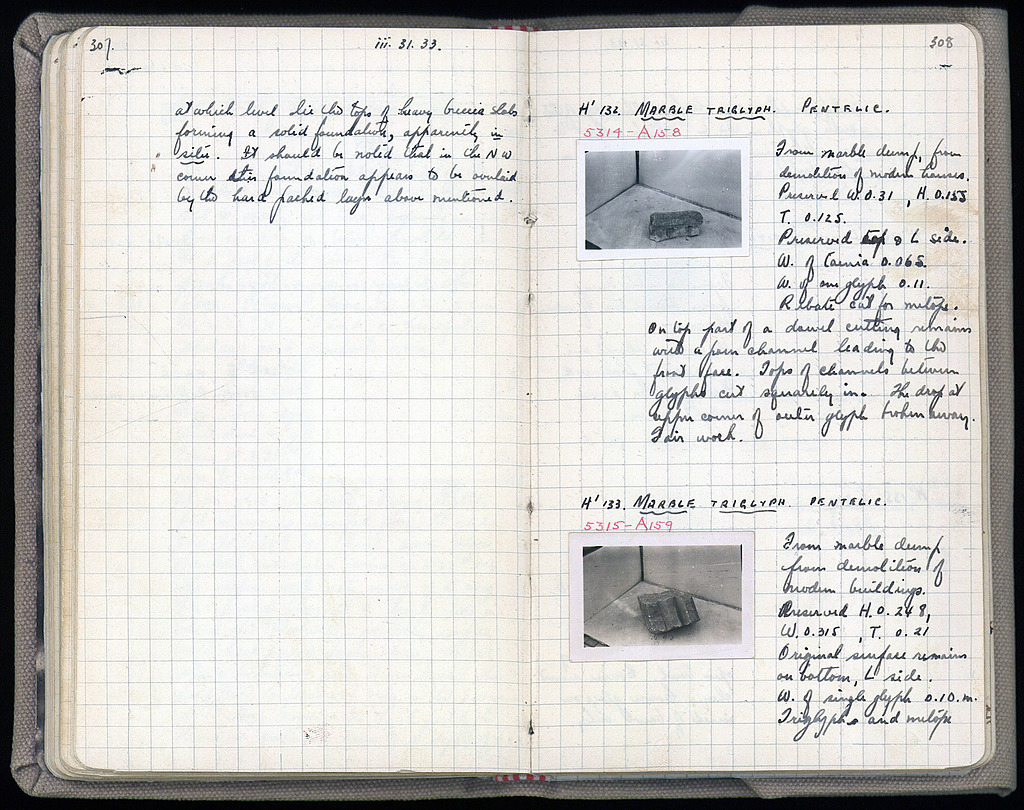 307.
iii. 31. 33.
at which level lie the tops of heavy breccia slabs
forming a solid foundation, apparently in
situ. It should be noted that in the NW
corner this foundation appears to be overlaid
by the hard packed layer above mentioned.
308
H' 132. MARBLE TRIGLYPH. PENTELIC.
5314-A158
From marble dump, from
demolition of modern houses.
Preserved W. 0.31 , H. 0.155
T. 0.125.
Preserved top & L side.
W. of taenia 0.065.
W. of one glyph 0.11.
Rebate cut for metope.
On top part of a dowel cutting remains
with a pour channel leading to the
front face. Tops of channels between
glyphs cut squarely in. The drop at
upper corner of outer glyph broken away.
Fair work.
H' 133. MARBLE TRIGLYPH. PENTELIC.
5315-A159
From marble dump
from demolition of
modern buildings.
Preserved H. 0.248,
W. 0.315 , T. 0.21
Original surface remains
on bottom, L side.
W. of single glyph 0.10.m.
Triglyphs and metope